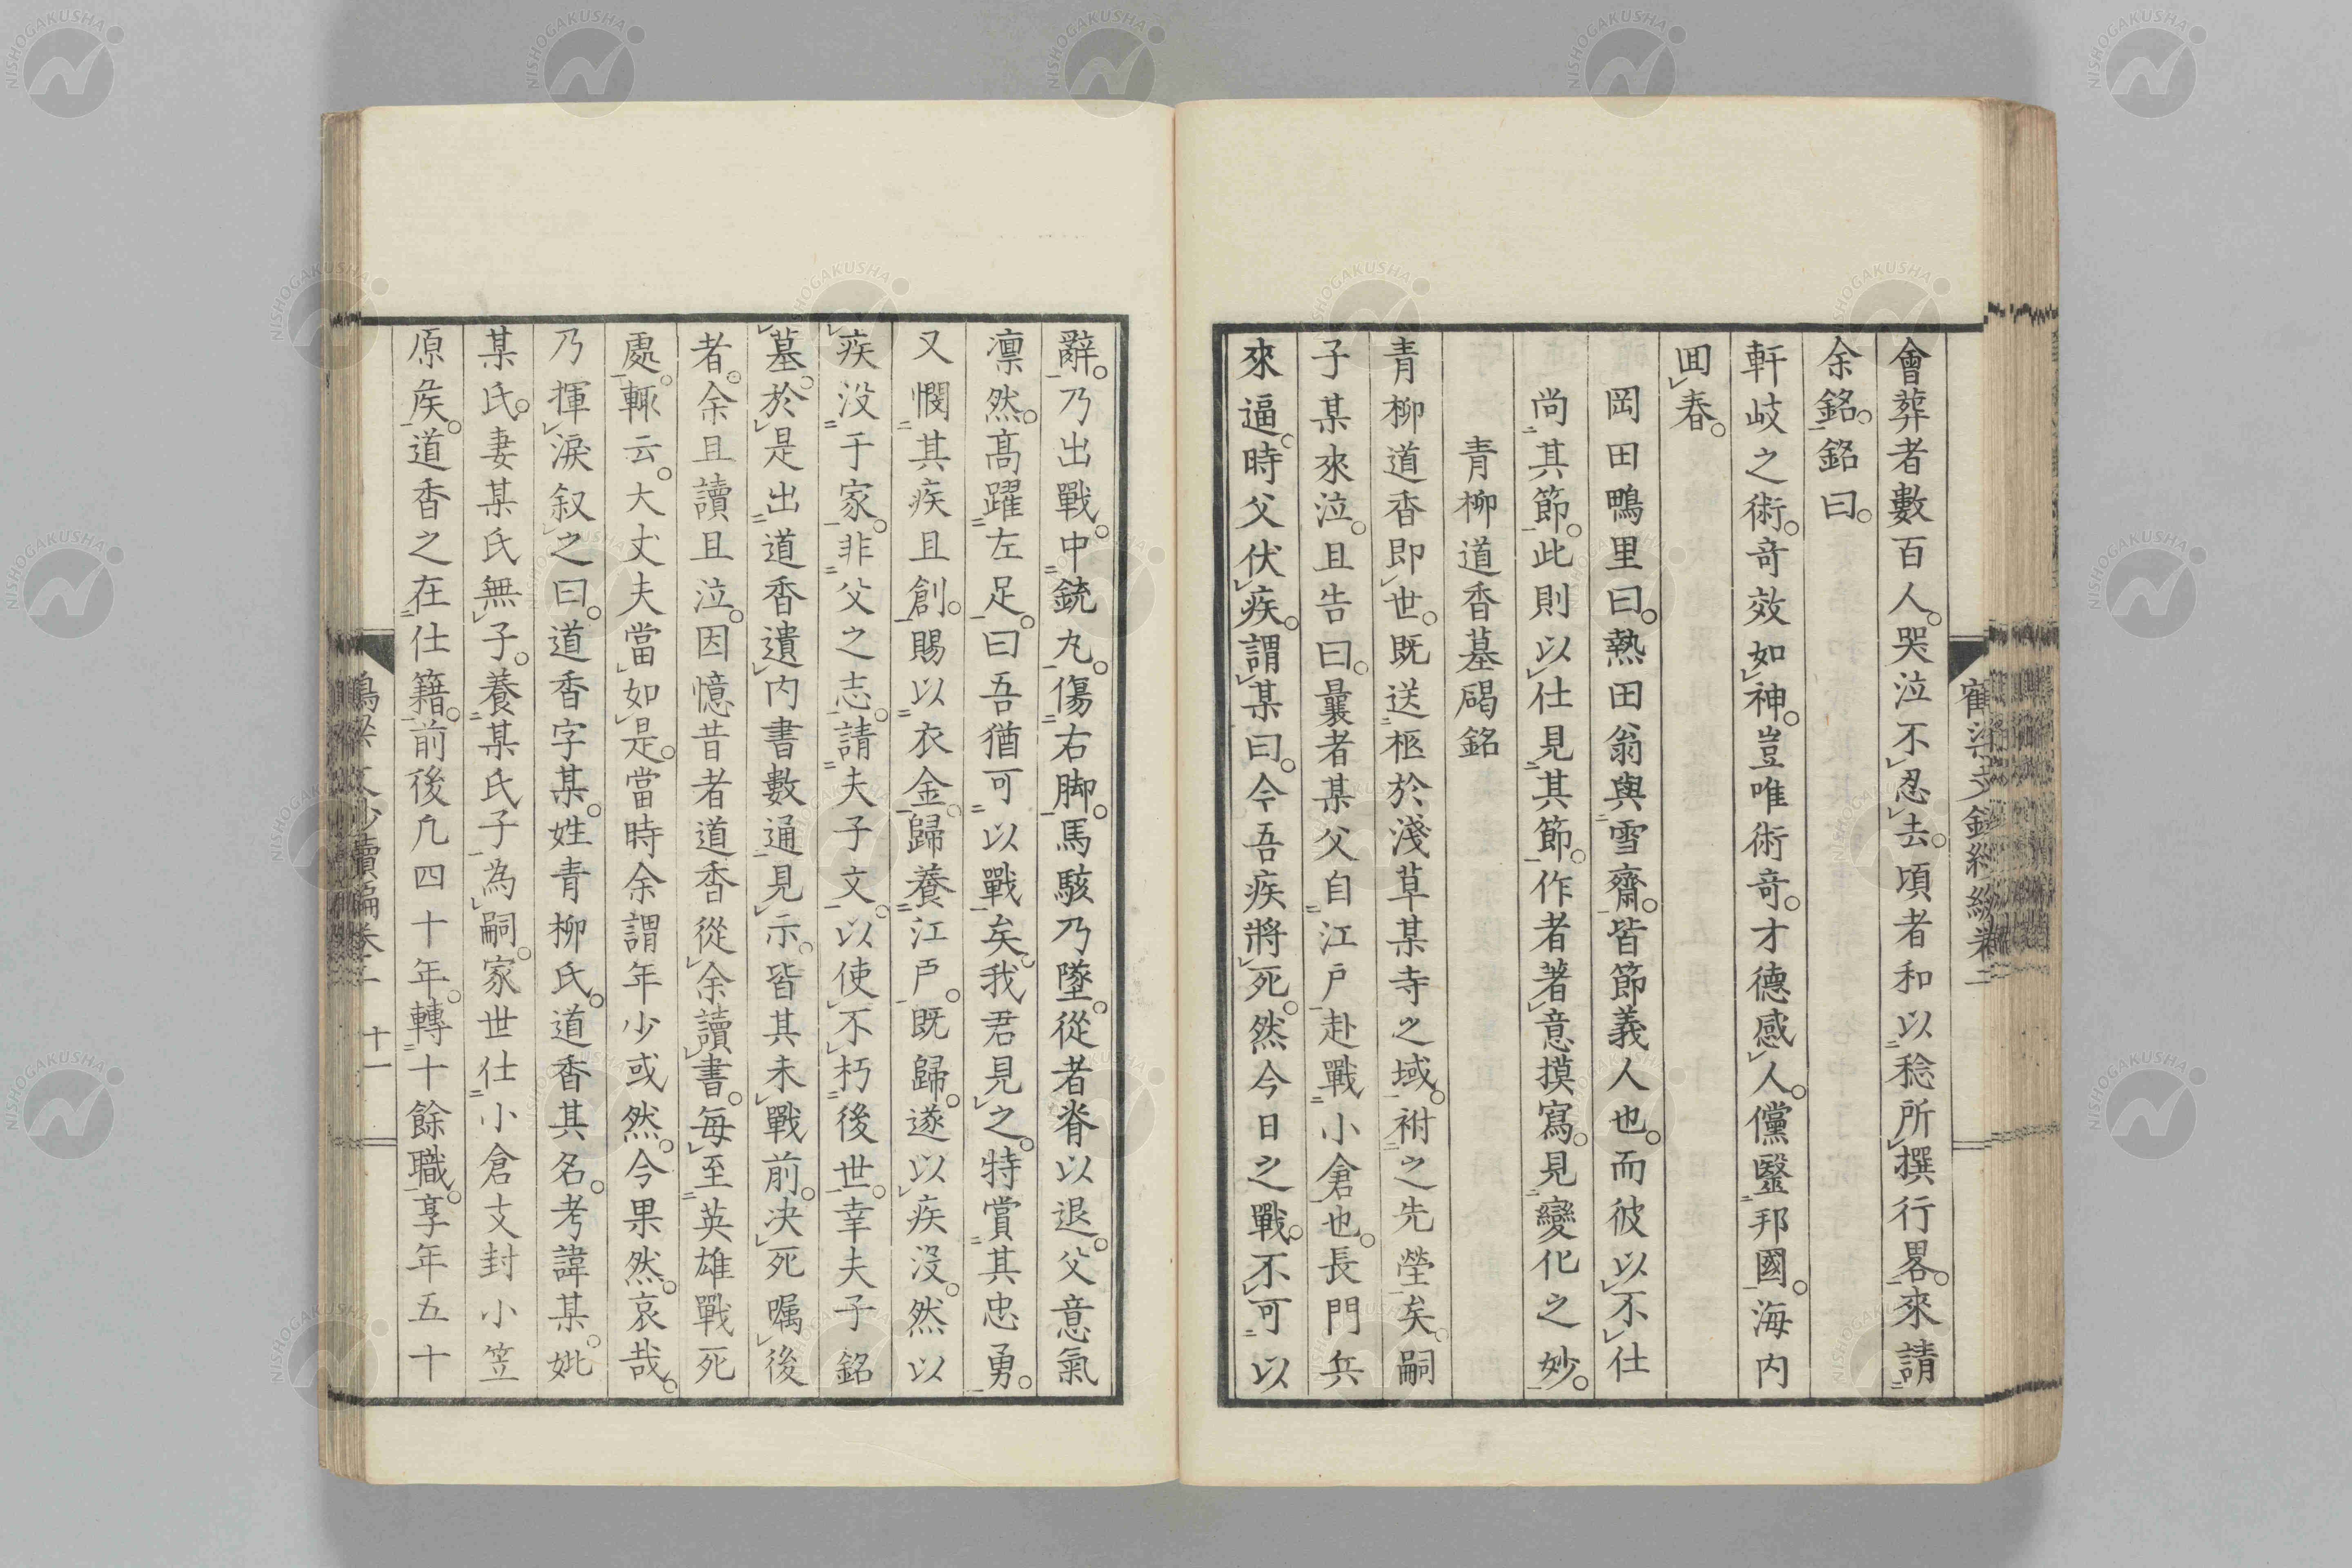 會葬者數百人。哭泣不忍去。頃者和以稔所撰行畧。來請
余銘。銘曰。
軒岐之術。奇效如神。豈唯術奇。才德感人。儻毉邦國。海內
囬春。
岡田鴨里曰。熱田翁與雪齋。皆節義人也。而彼以不仕
尚其節。此則以仕見其節。作者著意摸寫。見變化之妙。
青柳道香墓碣銘
青柳道香即世。既送柩於淺草某寺之域。祔之先塋矣。嗣
子某來泣。且告曰。曩者某父自江戶赴戰小倉也。長門兵
來逼。時父伏疾。謂某曰。今吾疾將死。然今日之戰。不可以
辭。乃出戰。中銃丸。傷右脚。馬駭乃墜。從者脊以退。父意氣
凛然。髙躍左足。曰吾猶可以戰矣。我君見之。特賞其忠勇。
又憫其疾且創。賜以衣金。歸養江戶。既歸。遂以疾沒。然以
疾没于家。非父之志。請夫子文。以使不朽後世。幸夫子銘
墓。於是出道香遺內書數通見示。皆其未戰前。决死嘱後
者。余且讀且泣。因憶昔者道香從余讀書。每至英雄戰死
處。輙云。大丈夫當如是。當時余謂年少或然。今果然。哀哉。
乃揮淚叙之曰。道香字某。姓青柳氏。道香其名。考諱某。妣
某氏。妻某氏無子。養某氏子為嗣。家世仕小倉支封小笠
原矦。道香之在仕籍。前後凢四十年。轉十餘職。享年五十
十一
NISHOGAKUSHA